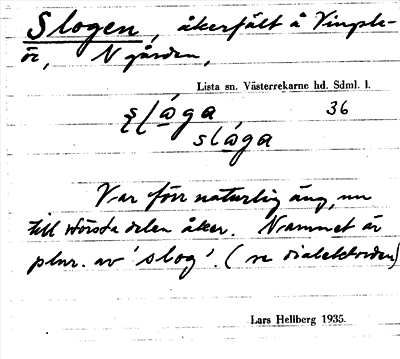 Slogen, åkerfält å Vingsle-
ör, N gården,
Lista sn. Västerrekarne hd. Sdml. l.
slå̀ga 36
slå̀ga
Var förr naturlig äng, nu
till största delen åker. Namnet är
plur. av 'slog'. (se dialektorden)
Lars Hellberg 1935.